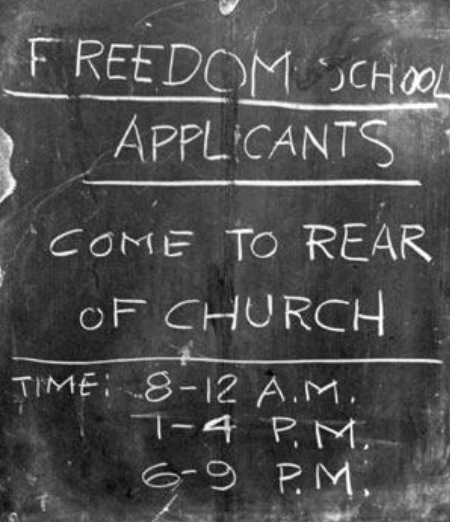 FREEDOM SCHOOL
APPLICANTS
COME TO REAR
OF CHURCH
TIME: 8-12 A.M.
1-4 P.M.
6-9 P.M.